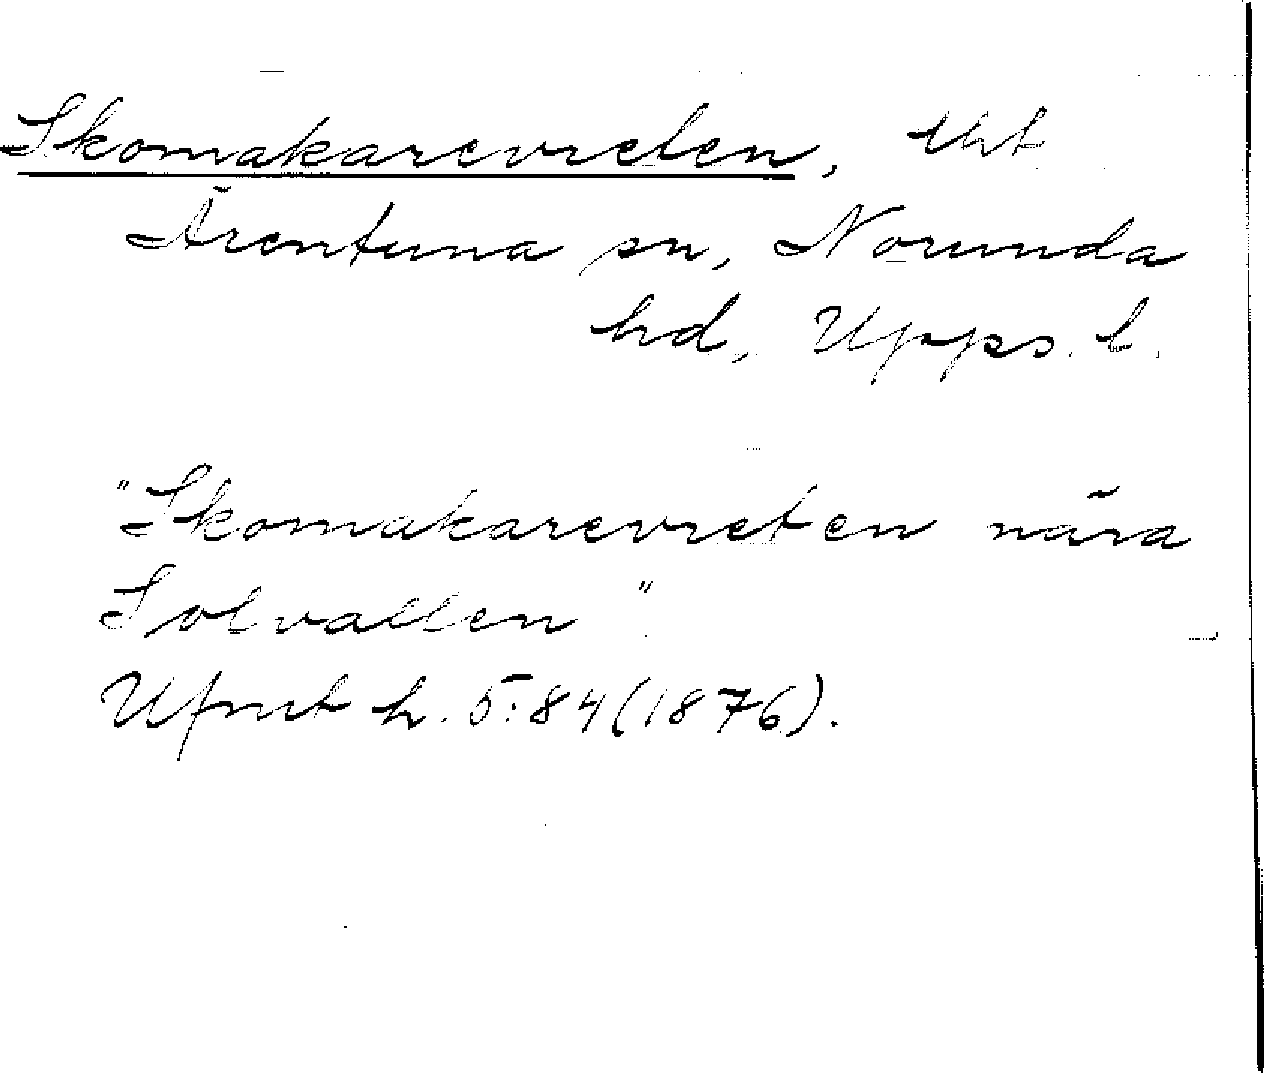 Skomakarevreten, tht
Ärentuna sn, Norunda
hd, Upps. l.
"Skomakarevreten nära
Solvallen"
Ufmt h. 5:84 (1876).